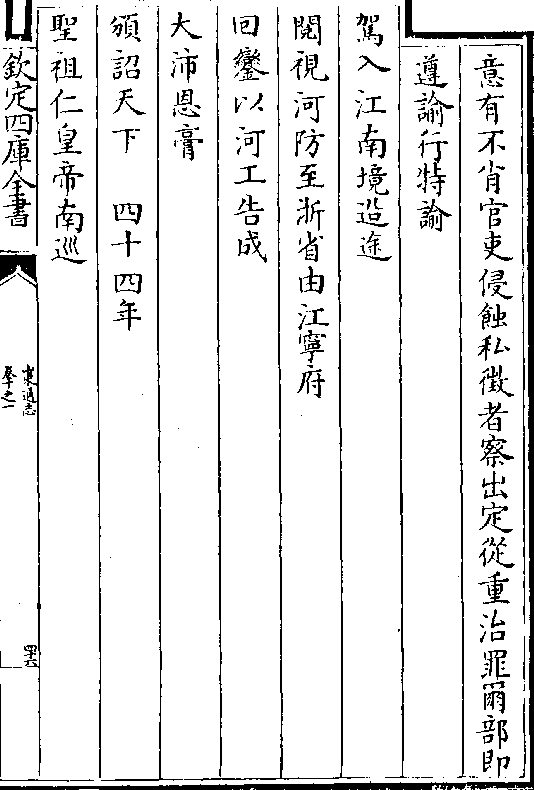 意有不肖官吏侵蝕私徴者察出定從重治罪爾部即
遵諭行特諭
駕入江南境沿途
閱視河防至浙省由江寧府
回鑾以河工告成
大沛恩膏
頒詔天下　四十四年
聖祖仁皇帝南巡
欽定四庫全書
卷之一
四十六